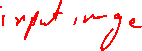 input image